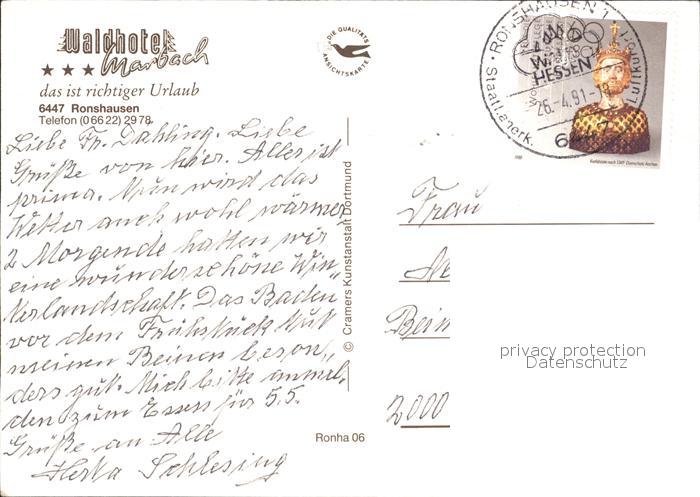 Waldhotel
Marbach
★ ★ ★
das ist richtiger Urlaub
6447 Ronshausen
Telefon (0 66 22) 29 78
Liebe Fr. Dahling. Liebe
Grüße von hier. Alles ist
prima. Nun wird das
Wetter auch wohl wärmer,
2 Morgende hatten wir
eine wunderschöne Win„
terlandschaft. Das Baden
vor dem Frühstück tut
meinen Beinen beson„
ders gut. Mich bitte anmel„
den zum Essen für 5.5.
Grüße an Alle
Herta Schlesing
DIE QUALITÄTS
ANSICHTSKARTE
© Cramers Kunstanstalt Dortmund
Ronha 06
RONSHAUSEN 1
HESSEN
26.-4.91
Staatl. anerk.
Luftkurort
Karlsbüste nach 1349 Domschatz Aachen
1988
Frau
Beim
2000
privacy protection
Datenschutz